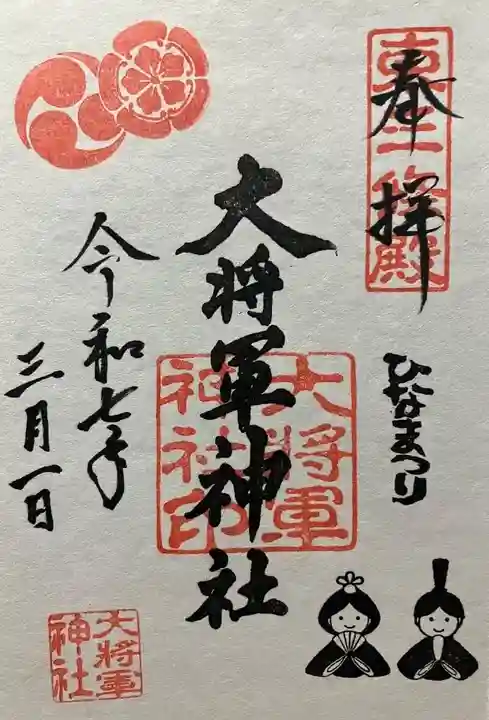 奉拝
東三條殿
ひなまつり
大将軍神社
大将軍
神社印
令和七年
三月一日
大将軍
神社